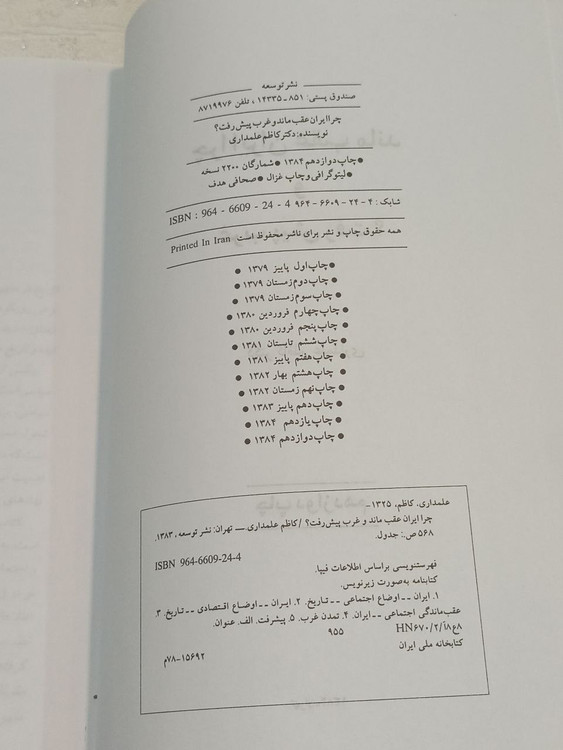 نشر توسعه
صندوق پستی: ۸۵۱ - ۱۴۳۳۵ ، تلفن ۸۷۱۹۹۷۶
چرا ایران عقب ماند و غرب پیش رفت؟
نویسنده: دکتر کاظم علمداری
● چاپ دوازدهم ۱۳۸۴ ● شمارگان ۲۲۰۰ نسخه
● لیتوگرافی و چاپ غزال ● صحافی هدف
شابک : ۴ - ۲۴ - ۶۶۰۹ - ۹۶۴ ISBN : 964 - 6609 - 24 - 4
همه حقوق چاپ و نشر برای ناشر محفوظ است Printed In Iran
● چاپ اول پاییز ۱۳۷۹ ●
● چاپ دوم زمستان ۱۳۷۹ ●
● چاپ سوم زمستان ۱۳۷۹ ●
● چاپ چهارم فروردین ۱۳۸۰ ●
● چاپ پنجم فروردین ۱۳۸۰ ●
● چاپ ششم تابستان ۱۳۸۱ ●
● چاپ هفتم پاییز ۱۳۸۱ ●
● چاپ هشتم بهار ۱۳۸۲ ●
● چاپ نهم زمستان ۱۳۸۲ ●
● چاپ دهم پاییز ۱۳۸۳ ●
● چاپ یازدهم ۱۳۸۴ ●
● چاپ دوازدهم ۱۳۸۴ ●
علمداری، کاظم، ۱۳۲۵-
چرا ایران عقب ماند و غرب پیش رفت؟ / کاظم علمداری __ تهران: نشر توسعه، ۱۳۸۳.
۵۶۸ ص.: جدول.
ISBN 964-6609-24-4
فهرستنویسی براساس اطلاعات فیپا.
کتابنامه به‌صورت زیرنویس.
۱. ایران -- اوضاع اجتماعی -- تاریخ. ۲. ایران -- اوضاع اقتصادی -- تاریخ. ۳.
عقب‌ماندگی اجتماعی -- ایران. ۴. تمدن غرب. ۵. پیشرفت. الف. عنوان.
۸ع۸آ/۲/HN۶۷۰ ۹۵۵
کتابخانه ملی ایران
۱۵۶۹۲-۷۸م